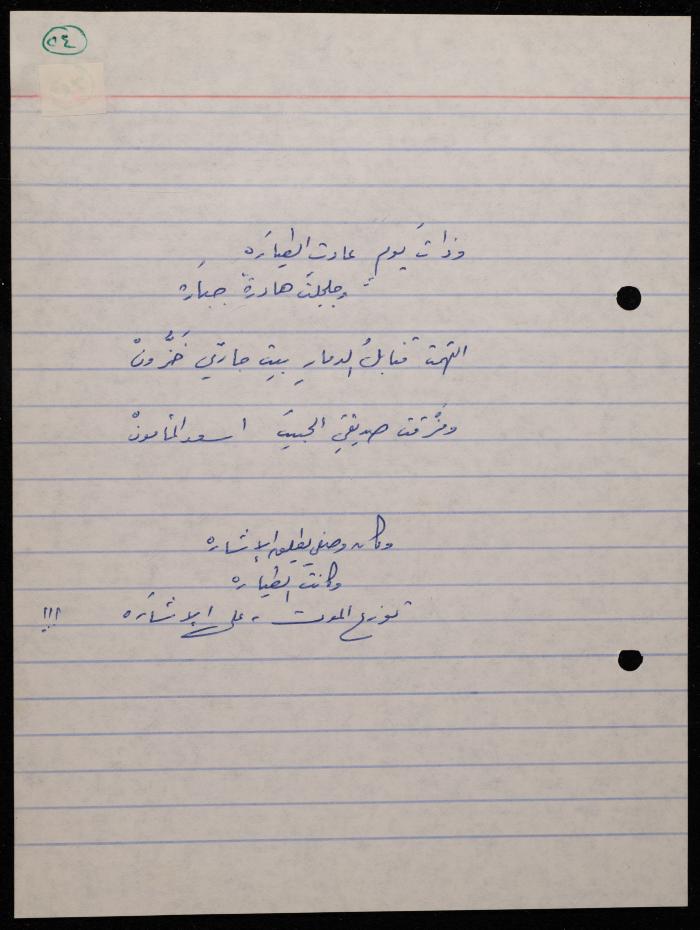 ٥٤
وذاتَ يومٍ عادت الطيارَه
وجلجلتْ هادرةً جبارَه
التهمتْ قنابلُ الدمارِ بيتَ جارتي خَزُّونْ
ومزّقتْ صديقيَ الحبيبَ اسعد المأمونْ
وكان وصفي يطلق الإشاره
وكانت الطياره
توزع الموت، على الإشاره !!!